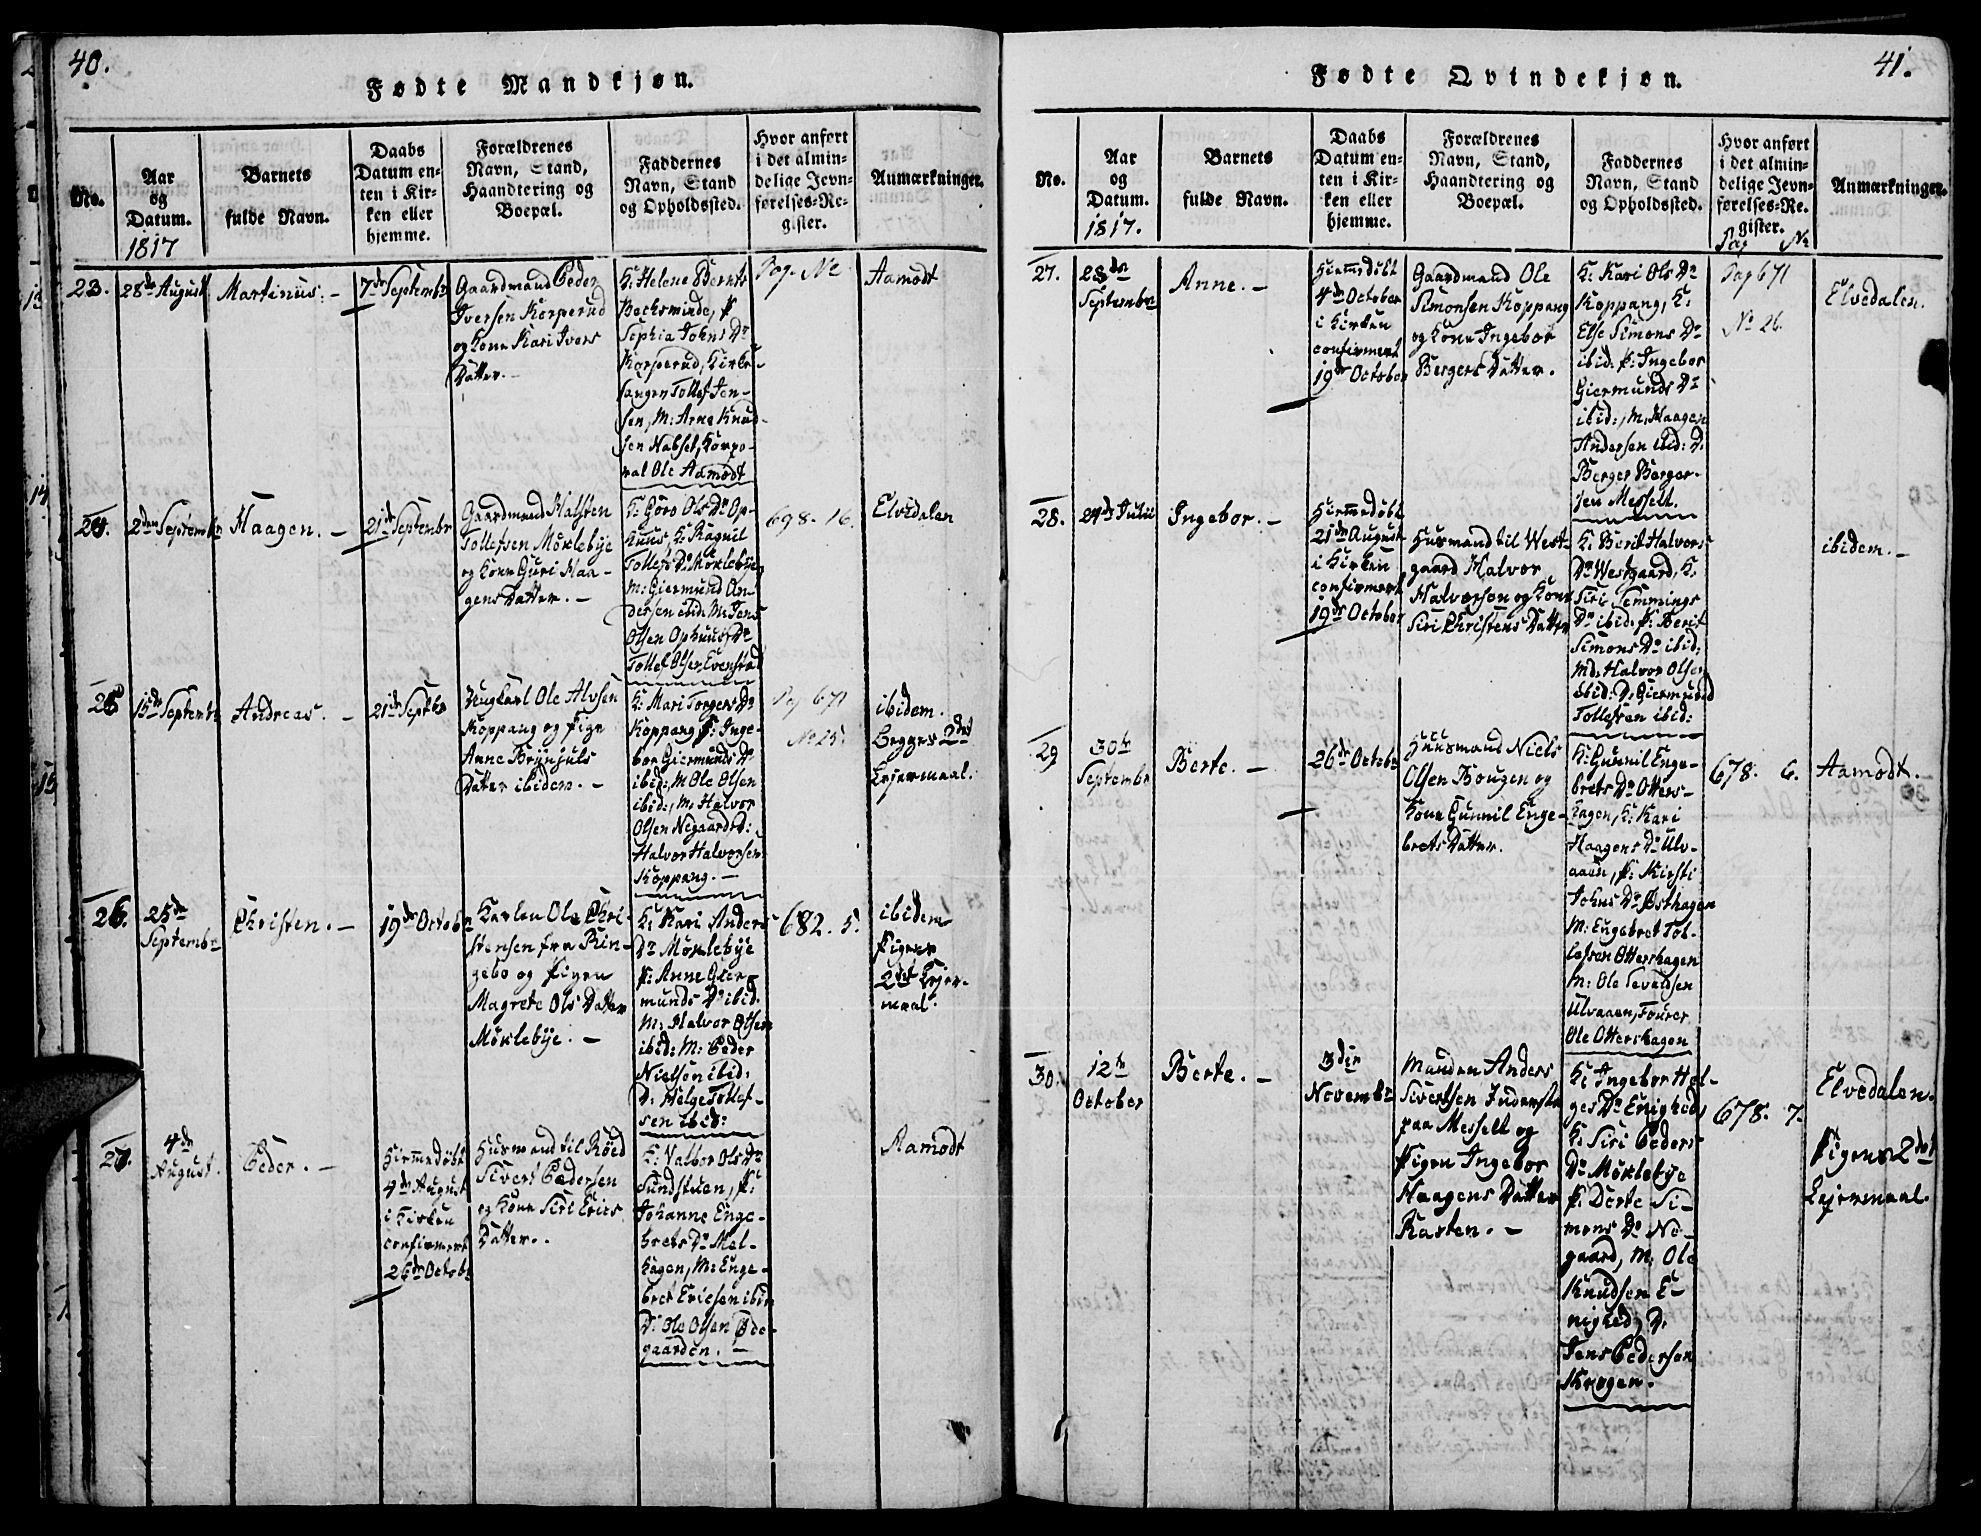 40.
Fødte Mandkjøn.
No.
Aar
og
Datum.
1817
Barnets
fulde Navn.
Daabs
Datum en-
ten i Kir-
ken eller
hjemme.
Forældrenes
Navn, Stand,
Haandtering og
Boepæl.
Faddernes
Navn, Stand
og Opholdssted.
Hvor anført
i det almin-
delige Jevn-
førelses-Re-
gister.
Anmærkninger.
23.
28de August
Martinus. -
7de Septembr
Gaardmand Peder
Iversen Korperud
og Kone Kari Ivers
Datter. -
K: Helene Bernts
Bechsminde, P
Sophia Johns Dr
Korperud, Kirke-
sanger Tollef Jen-
sen, M: Arne Knud-
sen Nabset, Korpo-
ral Ole Aamodt
Pag. No
Aamodt
24.
2den Septembr
Haagen. -
21de Septembr
Gaardmand Halsten
Tollefsen Möklebÿe
og Kone Guri Haa-
gens Datter. -
K: Göro Ols Dr Op-
huus, K: Ragnil
Tollefs Dr Möklebÿe
M: Giermund An-
dersen ibid: M: Jens
Olsen Ophuus D:
Tollef Olsen Evenstad
698. 16.
Elvedalen
25
15de Septembr
Andreas. -
21de Septbr
Ungkarl Ole Alvsen
Koppang og Pige
Anne Brÿnjuls
Datter ibidem. -
K: Mari Torgers Dr
Koppang P: Inge-
bor Giermunds Dr
ibid:, M Ole Olsen
ibid:, M: Halvor
Olsen Negaard D:
Halvor Halvorsen
Koppang. -
Pag 671
No 25.
ibidem.
Begges 2det
Lejermaal.
26.
25de
Septembr
Christen. -
19de Octobr
Karlen Ole Chri-
stensen fra Rin-
gebo og Pigen
Magrete Ols Datter
Möklebÿe. -
K: Kari Anders
Dr Möklebÿe
P: Anne Gier-
munds Dr ibid.
M: Halvor Olsen
ibid: M: Peder
Nielsen ibid:
D: Helge Tollef-
sen ibid:
682. 5.
ibidem
Pigens
2det Lejer-
maal.
27.
4de
August.
Peder. -
Hiemmedöbt
4de August
i Kirken
confirmert
26de Octobr
Husmand til Röed
Sivert Pedersen
og Kone Siri Erics
Datter.
K: Valbor Ols Dr
Sundstuen, P:
Johanne Enge-
brets Dr Mel-
hagen, M: Enge-
bret Ericsen ibid:
D: Ole Olsen Öde-
gaarden. -
Aamodt
41.
Fødte Qvindekjøn.
No.
Aar
og
Datum.
1817.
Barnets
fulde Navn.
Daabs
Datum en-
ten i Kir-
ken eller
hjemme.
Forældrenes
Navn, Stand,
Haandtering og
Boepæl.
Faddernes
Navn, Stand
og Opholdssted.
Hvor anført
i det almin-
delige Jevn-
førelses-Re-
gister.
Pag No
Anmærkninger.
27.
28de
Septembr
Anne. -
Hiemdöbt
4de October
i Kirken
confirmert
19de October
Gaardmand Ole
Simonsen Koppang
og Kone Ingebor
Bergers Datter.
K: Kari Ols Dr
Koppang, K:
Else Simons Dr
ibid: P: Ingebor
Giermunds Dr
ibid:, M: Haagen
Andersen ibid: D:
Berger Berger-
sen Messelt.
Pag 671
No 26.
Elvedalen.
28.
24de Julii
Ingebor. -
Hiemmedöbt
21de August
i Kirken
confirmert
19de October
Husmand til West-
gaard Halvor
Halvorsen og Kone
Siri Christens Datter
K: Berit Halvors
Dr Westgaard, K:
Siri Semmings
Dr ibid: P: Berit
Simons Dr ibid:
M: Halvor Olsen
ibid: D: Giermund
Tollefsen ibid:
ibidem. -
29
30te
Septembr
Berte. -
26de Octobr
Huusmand Niels
Olsen Hougen og
Kone Gunnil Enge-
brets Datter.
K: Gunnil Enge-
brets Dr Otters-
hagen, K: Kari
Haagens Dr Ulv-
aaen, P: Kirsti
Johns Dr Østhagen
M: Engebret Tol-
lefsen Ottershagen
M: Ole Tevaldsen
Ulvaaen, Fourer
Ole Ottershagen
678. 6.
Aamodt.
30.
12te
October
Berte. -
3die
Novembr
Manden Anders
Sivertsen Inderste
paa Messelt og
Pigen Ingebor
Haagens Datter
Kasten. -
K: Ingebor Hel-
ges Dr Enighed
K: Siri Peders
Dr Möklebÿe
P: Derte Si-
mens Dr Ne-
gaard, M: Ole
Knudsen E-
nighed, D:
Jens Pedersen
Krogen.
678. 7.
Elvedalen.
Pigens 2det
Lejermaal.